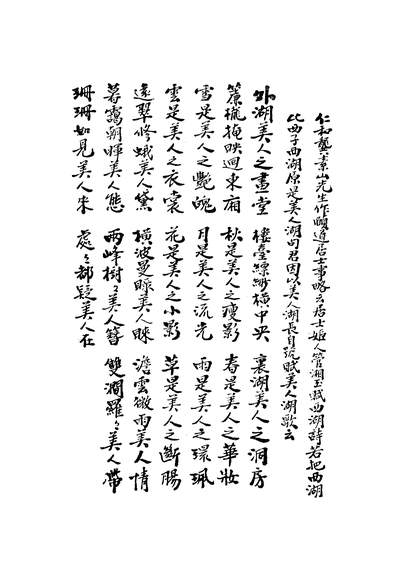 仁和龔素山先生作頤道居士事略云居士姬人管湘玉賦西湖詩若把西湖
比西子西湖原是美人湖句君因以美人湖長自號賦美人湖歌云
外湖美人之畫堂 樓臺縹緲橫中央 裏湖美人之洞房
簾櫳掩映迴東廂 秋是美人之瘦影 春是美人之華妝
雪是美人之艷魄 月是美人之流光 雨是美人之環珮
雲是美人之衣裳 花是美人之小影 草是美人之斷腸
遠翠修蛾美人黛 橫波曼睩美人睞 澹雲微雨美人情
暮靄朝暉美人態 兩峰樹〻美人簪 雙澗羅〻美人帶
珊珊如見美人來 處〻都疑美人在